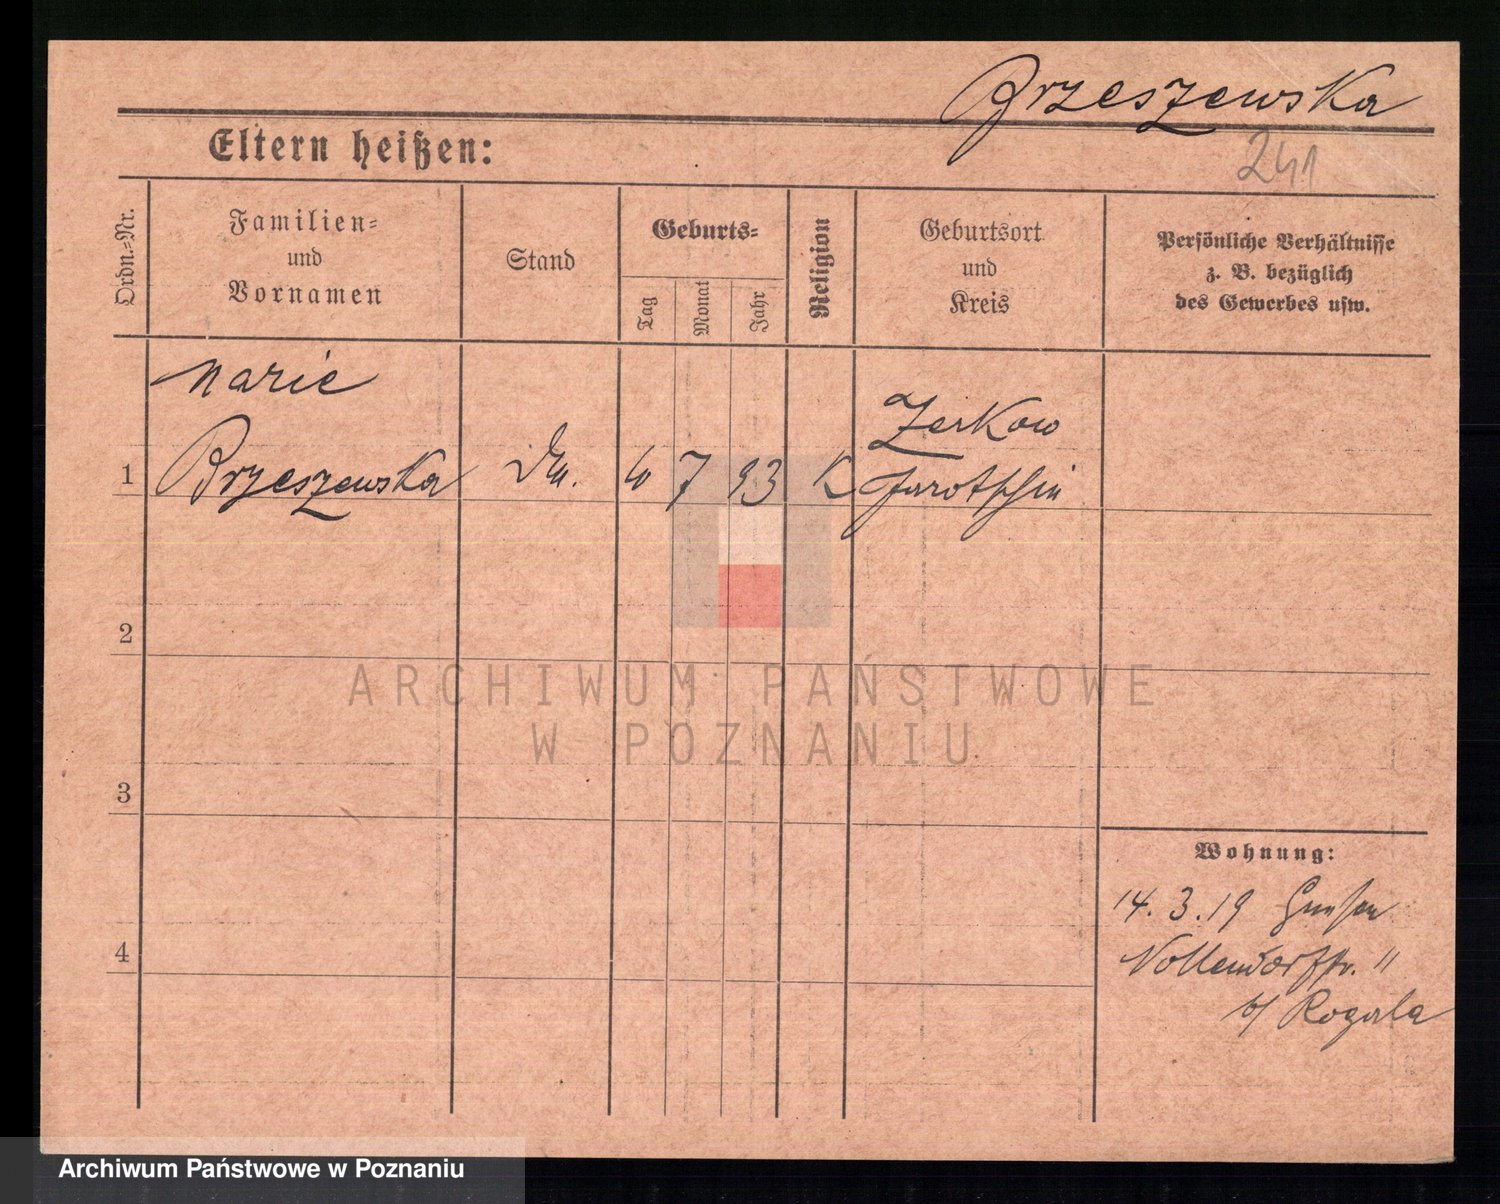 Brzeszewska
241
Eltern heißen:
Ordn.=Nr.
Familien=
und
Vornamen
Stand
Geburts=
Tag
Monat
Jahr
Religion
Geburtsort
und
Kreis
Persönliche Verhältnisse
z. B. bezüglich
des Gewerbes usw.
Marie
Zerkow
1 Brzeszewska 7 93 K Jarotschin
2
ARCHIWUM PANSTWOWE
W POZNANIU
3
Wohnung:
14. 3. 19
4
Nollendorfstr. 11
b/ Rogala
Archiwum Państwowe w Poznaniu